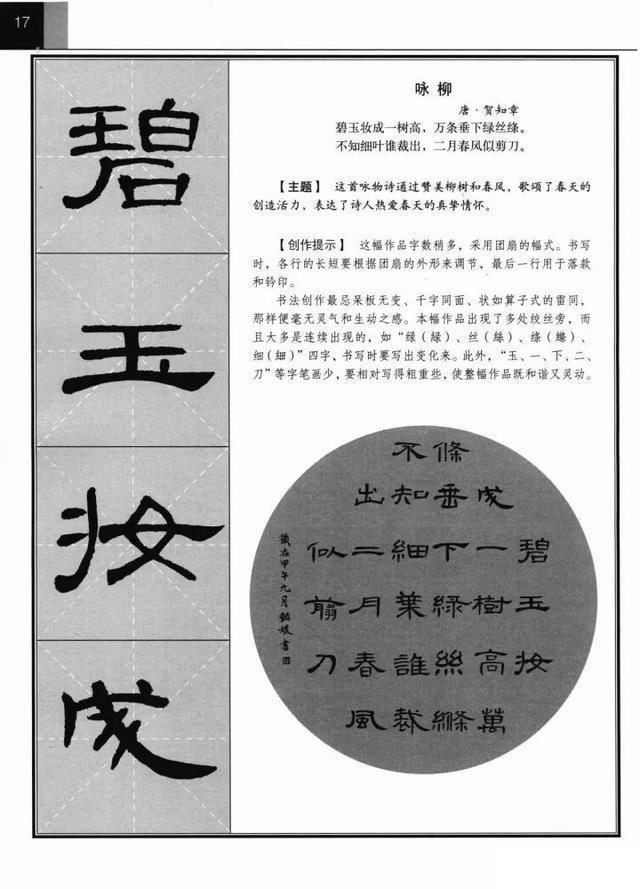 17
碧
玉
妆
成
咏柳
唐·贺知章
碧玉妆成一树高，万条垂下绿丝绦。
不知细叶谁裁出，二月春风似剪刀。
【主题】 这首咏物诗通过赞美柳树和春风，歌颂了春天的
创造活力，表达了诗人热爱春天的真挚情怀。
【创作提示】 这幅作品字数稍多，采用团扇的幅式。书写
时，各行的长短要根据团扇的外形来调节，最后一行用于落款
和钤印。
书法创作最忌呆板无变、千字同面、状如算子式的雷同，
那样便毫无灵气和生动之感。本幅作品出现了多处绞丝旁，而
且大多是连续出现的，如“绿（綠）、丝（絲）、绦（縧）、
细（細）”四字，书写时要写出变化来。此外，“玉、一、下、二、
刀”等字笔画少，要相对写得粗重些，使整幅作品既和谐又灵动。
碧玉妆
成一樹高萬
條垂下綠絲縧
不知細葉誰裁
出二月春風
似剪刀
歲在甲午九月
書